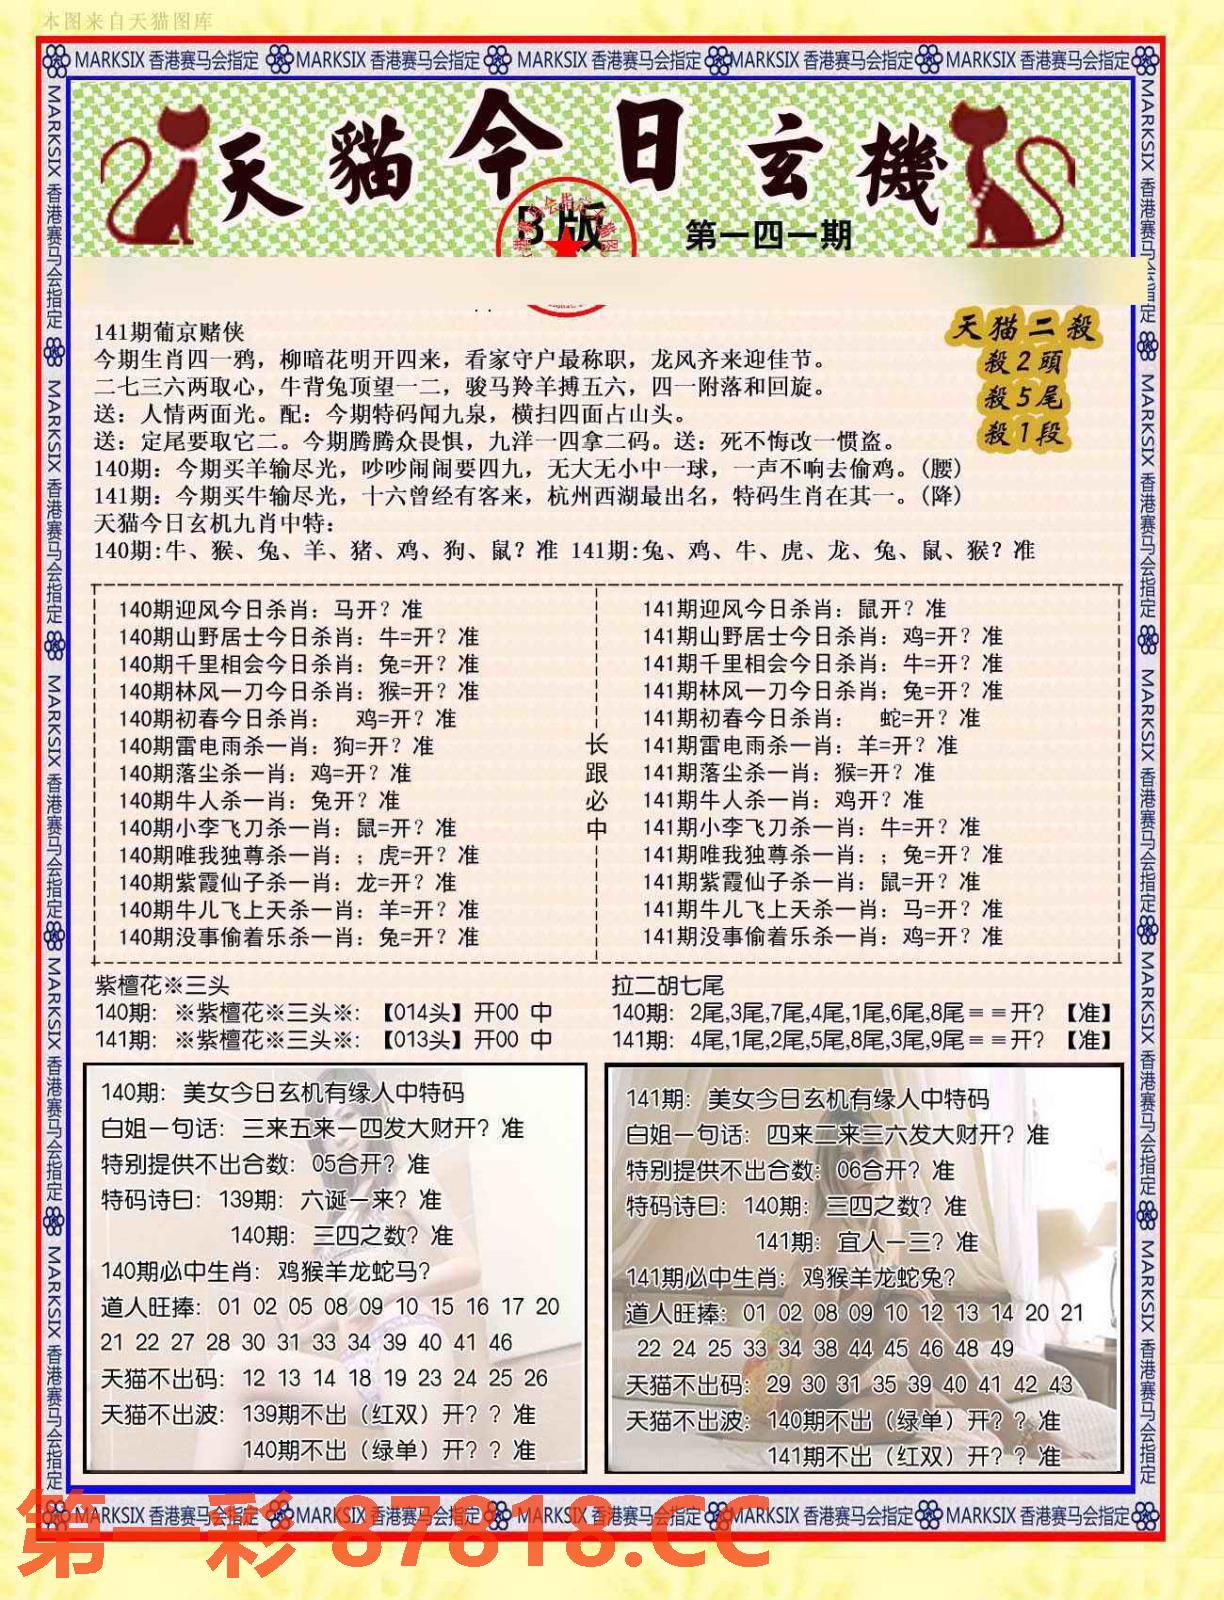 本图来自天猫图库
MARKSIX 香港赛马会指定 MARKSIX 香港赛马会指定 MARKSIX 香港赛马会指定 MARKSIX 香港赛马会指定 MARKSIX 香港赛马会指定
天貓今日玄機
B版
第一四一期
天猫二殺
殺2頭
殺5尾
殺1段
141期葡京赌侠
今期生肖四一鸦，柳暗花明开四来，看家守户最称职，龙风齐来迎佳节。
二七三六两取心，牛背兔顶望一二，骏马羚羊搏五六，四一附落和回旋。
送：人情两面光。配：今期特码闻九泉，横扫四面占山头。
送：定尾要取它二。今期腾腾众畏惧，九洋一四拿二码。送：死不悔改一惯盗。
140期：今期买羊输尽光，吵吵闹闹要四九，无大无小中一球，一声不响去偷鸡。（腰）
141期：今期买牛输尽光，十六曾经有客来，杭州西湖最出名，特码生肖在其一。（降）
天猫今日玄机九肖中特：
140期:牛、猴、兔、羊、猪、鸡、狗、鼠？准 141期:兔、鸡、牛、虎、龙、兔、鼠、猴？准
140期迎风今日杀肖：马开？准
140期山野居士今日杀肖：牛=开？准
140期千里相会今日杀肖：兔=开？准
140期林风一刀今日杀肖：猴=开？准
140期初春今日杀肖： 鸡=开？准
140期雷电雨杀一肖：狗=开？准
140期落尘杀一肖：鸡=开？准
140期牛人杀一肖：兔开？准
140期小李飞刀杀一肖：鼠=开？准
140期唯我独尊杀一肖：；虎=开？准
140期紫霞仙子杀一肖：龙=开？准
140期牛儿飞上天杀一肖：羊=开？准
140期没事偷着乐杀一肖：兔=开？准
长跟必中
141期迎风今日杀肖：鼠开？准
141期山野居士今日杀肖：鸡=开？准
141期千里相会今日杀肖：牛=开？准
141期林风一刀今日杀肖：兔=开？准
141期初春今日杀肖： 蛇=开？准
141期雷电雨杀一肖：羊=开？准
141期落尘杀一肖：猴=开？准
141期牛人杀一肖：鸡开？准
141期小李飞刀杀一肖：牛=开？准
141期唯我独尊杀一肖：；兔=开？准
141期紫霞仙子杀一肖：鼠=开？准
141期牛儿飞上天杀一肖：马=开？准
141期没事偷着乐杀一肖：鸡=开？准
紫檀花※三头
140期：※紫檀花※三头※：【014头】开00 中
141期：※紫檀花※三头※：【013头】开00 中
拉二胡七尾
140期：2尾,3尾,7尾,4尾,1尾,6尾,8尾＝＝开？【准】
141期：4尾,1尾,2尾,5尾,8尾,3尾,9尾＝＝开？【准】
140期：美女今日玄机有缘人中特码
白姐一句话：三来五来一四发大财开？准
特别提供不出合数：05合开？准
特码诗曰：139期：六诞一来？准
140期：三四之数？准
140期必中生肖：鸡猴羊龙蛇马？
道人旺捧：01 02 05 08 09 10 15 16 17 20
21 22 27 28 30 31 33 34 39 40 41 46
天猫不出码：12 13 14 18 19 23 24 25 26
天猫不出波：139期不出（红双）开？？准
140期不出（绿单）开？？准
141期：美女今日玄机有缘人中特码
白姐一句话：四来二来三六发大财开？准
特别提供不出合数：06合开？准
特码诗曰：140期：三四之数？准
141期：宜人一三？准
141期必中生肖：鸡猴羊龙蛇兔？
道人旺捧：01 02 08 09 10 12 13 14 20 21
22 24 25 33 34 38 44 45 46 48 49
天猫不出码：29 30 31 35 39 40 41 42 43
天猫不出波：140期不出（绿单）开？？准
141期不出（红双）开？？准
MARKSIX 香港赛马会指定 MARKSIX 香港赛马会指定 MARKSIX 香港赛马会指定 MARKSIX 香港赛马会指定 MARKSIX 香港赛马会指定
MARKSIX 香港赛马会指定 MARKSIX 香港赛马会指定 MARKSIX 香港赛马会指定 MARKSIX 香港赛马会指定 MARKSIX 香港赛马会指定
MARKSIX 香港赛马会指定 MARKSIX 香港赛马会指定 MARKSIX 香港赛马会指定 MARKSIX 香港赛马会指定 MARKSIX 香港赛马会指定
第一彩 87818.CC